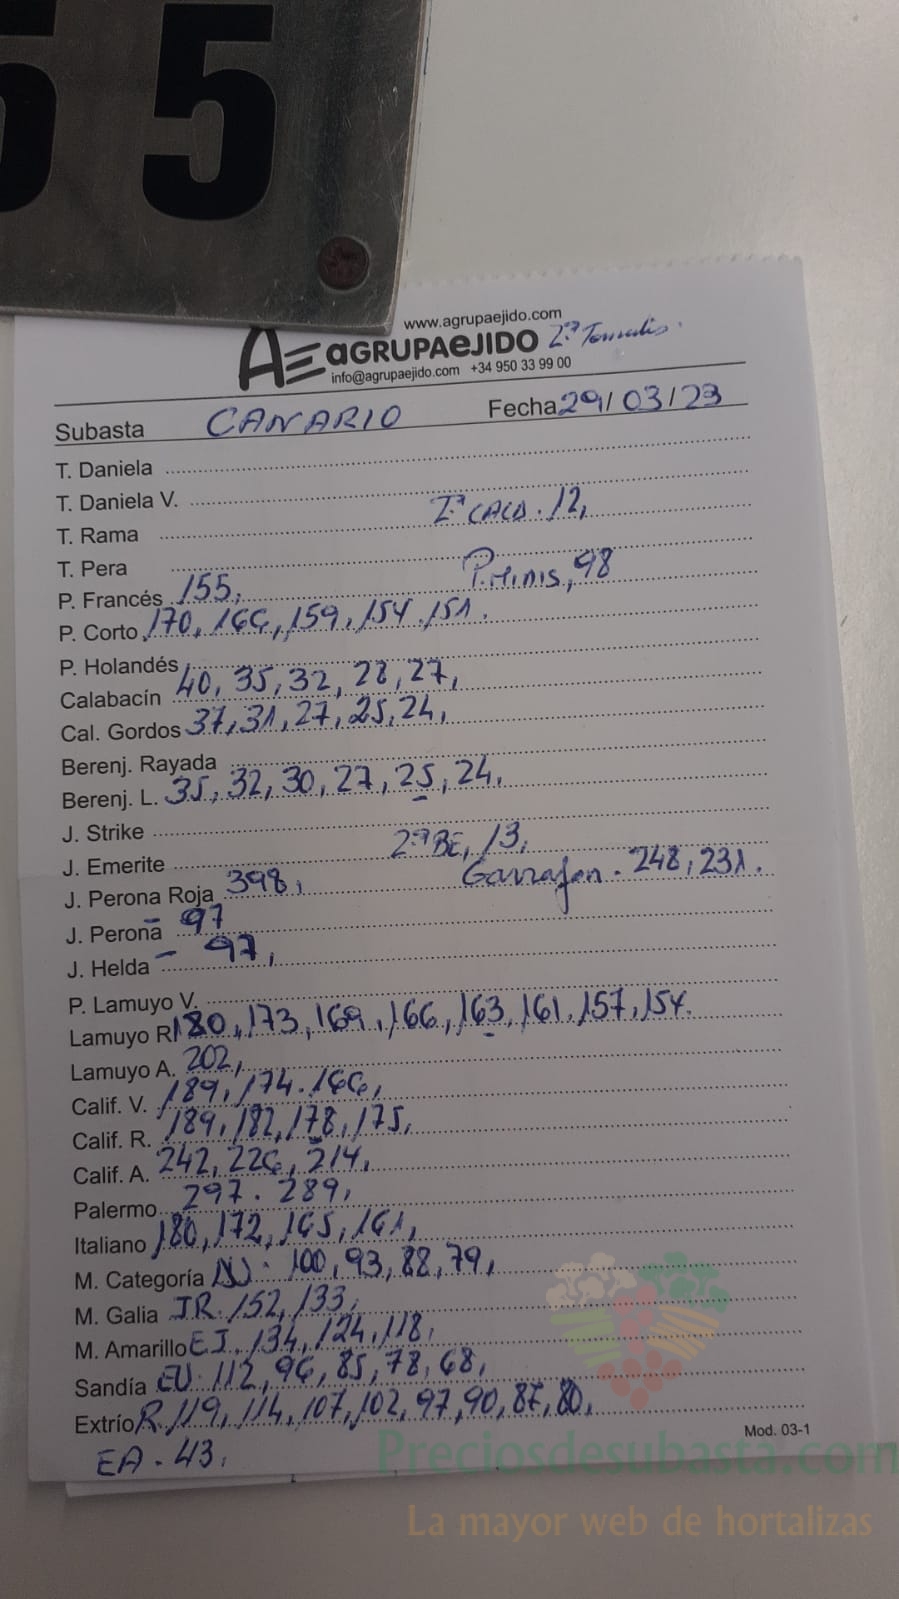 55
www.agrupaejido.com
AE aGRUPAeJIDO 2ª
info@agrupaejido.com +34 950 33 99 00
Subasta CANARIO Fecha 29/03/23
T. Daniela
T. Daniela V.
T. Rama 2ª CALA. 12,
T. Pera
P. Francés 155, P. Minis, 98
P. Corto 170, 166, 159, 154. 151.
P. Holandés
Calabacín 40, 35, 32, 28, 27,
Cal. Gordos 37, 31, 27, 25, 24,
Berenj. Rayada
Berenj. L. 35, 32, 30, 27, 25, 24,
J. Strike
J. Emerite 2ª BE, 13,
J. Perona Roja 398, Garrafon. 248, 231.
J. Perona - 97
J. Helda - 97,
P. Lamuyo V.
Lamuyo R 180, 173, 169, 166, 163, 161, 157, 154.
Lamuyo A. 202,
Calif. V. 189, 174. 166,
Calif. R. 189, 182, 178, 175,
Calif. A. 242, 226, 214,
Palermo 297. 289,
Italiano 180, 172, 165, 161,
M. Categoría NJ. 100, 93, 88, 79,
M. Galia JR. 152, 133,
M. Amarillo EJ. 134, 124, 118,
Sandía EU. 112, 96, 85, 78, 68,
Extrío R. 119, 114, 107, 102, 97, 90, 87, 80,
Mod. 03-1
EA. 43,
Preciosdesubasta.com
La mayor web de hortalizas